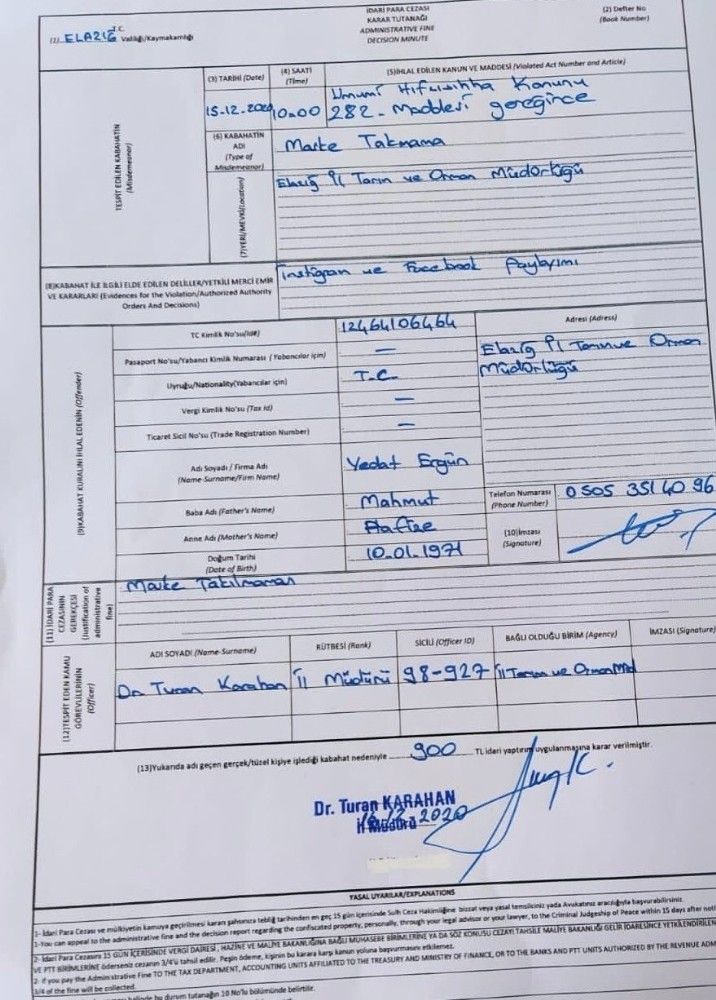 T.C.
(1) ELAZIĞ Valiliği/Kaymakamlığı
İDARİ PARA CEZASI
KARAR TUTANAĞI
ADMINISTRATIVE FINE
DECISION MINUTE
(2) Defter No
(Book Number)
TESPİT EDİLEN KABAHATİN
(Misdemeanor)
(3) TARİHİ (Date)
(4) SAATİ
(Time)
(5)İHLAL EDİLEN KANUN VE MADDESİ (Violated Act Number and Article)
15-12.2020
10:00
Umumi Hıfzısıhha Kanunu
282. Maddesi gereğince
(6) KABAHATIN
ADI
(Type of
Misdemeanor)
Maske Takmama
(7)YERİ/MEVKİ(Location)
Elazığ İl Tarım ve Orman Müdürlüğü
(8)KABAHAT İLE İLGİLİ ELDE EDİLEN DELİLLER/YETKİLİ MERCİ EMİR
VE KARARLARI (Evidences for the Violation/Authorized Authority
Orders And Decisions)
İnstigran ve Facebook Paylaşımı
(9)KABAHAT KURALINI İHLAL EDENİN (Offender)
TC Kimlik No'su(Ide)
12464106464
Adresi (Adress)
Pasaport No'su/Yabancı Kimlik Numarası (Yabancılar için)
—
Elazığ İl Tarım ve Orman
Müdürlüğü
Uyruğu/Nationality(Yabancılar için)
T.C.
Vergi Kimlik No'su (Tax id)
—
Ticaret Sicil No'su (Trade Registration Number)
—
Adı Soyadı / Firma Adı
(Name-Surname/Firm Name)
Vedat Ergün
Baba Adı (Father's Name)
Mahmut
Telefon Numarası
(Phone Number)
0 505 351 40 96
Anne Adı (Mother's Name)
(10)İmzası
(Signature)
Doğum Tarihi
(Date of Birth)
10.01.1971
(11) İDARİ PARA
CEZASININ
GEREKÇESİ
(Justification of
administrative
fine)
Maske Takılmaması
(12)TESPİT EDEN KAMU
GÖREVLİLERİNİN
(Officer)
ADI SOYADI (Name-Surname)
RÜTBESİ (Rank)
SİCİLİ (Officer ID)
BAĞLI OLDUĞU BİRİM (Agency)
İMZASI (Signature)
Dr. Turan Karahan
İl Müdürü
98-927
İl Tarım ve Orman Md
(13)Yukarıda adı geçen gerçek/tüzel kişiye işlediği kabahat nedeniyle 900 TL idari yaptırım uygulanmasına karar verilmiştir.
Dr. Turan KARAHAN
İl Müdürü
2020
YASAL UYARILAR/EXPLANATIONS
1- İdari Para Cezası ve mülkiyetin kamuya geçirilmesi kararı şahsınıza tebliğ tarihinden en geç 15 gün içerisinde Sulh Ceza Hakimliğine bizzat veya yasal temsilciniz yada Avukatınız aracılığıyla başvurabilirsiniz.
1-You can appeal to the administrative fine and the decision report regarding the confiscated property, personally, through your legal advisor or your lawyer, to the Criminal Judgeship of Peace within 15 days after
2- İdari Para Cezasını 15 GÜN İÇERİSİNDE VERGİ DAİRESİ, HAZİNE VE MALİYE BAKANLIĞINA BAĞLI MUHASEBE BİRİMLERİNE YA DA SÖZ KONUSU CEZAYI TAHSİLE MALİYE BAKANLIĞI GELİR İDARESİNCE
VE PTT BİRİMLERİNE öderseniz cezanın 3/4'ü tahsil edilir. Peşin ödeme, kişinin bu karara karşı kanun yoluna başvurmasını etkilemez.
2- If you pay the Administrative Fine TO THE TAX DEPARTMENT, ACCOUNTING UNITS AFFILIATED TO THE TREASURY AND MINISTRY OF FINANCE, OR TO THE BANKS AND PTT UNITS AUTHORIZED BY THE REVENUE
3/4 of the fine will be collected.
bu durum tutanağın 10 No'lu bölümünde belirtilir.